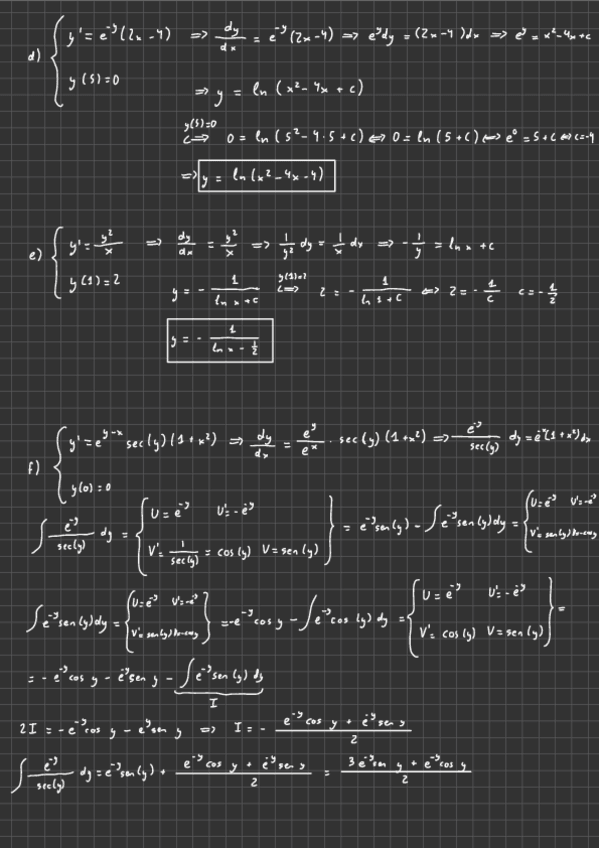 d) { y' = e^{-y}(2x-4) ⇒ dy/dx = e^{-y}(2x-4) ⇒ e^y dy = (2x-4)dx ⇒ e^y = x²-4x+c
y(5)=0 ⇒ y = ln(x²-4x+c)
y(5)=0 ⇐⇒ 0 = ln(5²-4·5+c) ⇔ 0 = ln(5+c) ⇔ e⁰ = 5+c ⇔ c=-4
⇒ y = ln(x²-4x-4)
e) { y' = y²/x ⇒ dy/dx = y²/x ⇒ 1/y² dy = 1/x dx ⇒ -1/y = ln x + c
y(1)=2 y = - 1/(ln x + c) y(1)=2 ⇐⇒ 2 = - 1/(ln 1 + c) ⇔ 2 = - 1/c c = - 1/2
y = - 1/(ln x - 1/2)
f) { y' = e^{y-x} sec(y)(1+x²) ⇒ dy/dx = e^y/e^x · sec(y)(1+x²) ⇒ e^{-y}/sec(y) dy = e^{-x}(1+x²)dx
y(0)=0
∫ e^{-y}/sec(y) dy = { U = e^{-y} U' = -e^{-y} V' = 1/sec(y) = cos(y) V = sen(y) } = e^{-y}sen(y) - ∫ e^{-y}sen(y)dy = { U=e^{-y} U'=-e^{-y} V'=sen(y)
∫ e^{-y}sen(y)dy = { U=e^{-y} U'=-e^{-y} V'=sen(y) } = -e^{-y}cos y - ∫ e^{-y}cos(y)dy = { U = e^{-y} U' = -e^{-y} V' = cos(y) V = sen(y) } =
= -e^{-y}cos y - e^{-y}sen y - ∫ e^{-y}sen(y)dy
I
2I = -e^{-y}cos y - e^{-y}sen y ⇒ I = - (e^{-y}cos y + e^{-y}sen y)/2
∫ e^{-y}/sec(y) dy = e^{-y}sen(y) + (e^{-y}cos y + e^{-y}sen y)/2 = (3e^{-y}sen y + e^{-y}cos y)/2